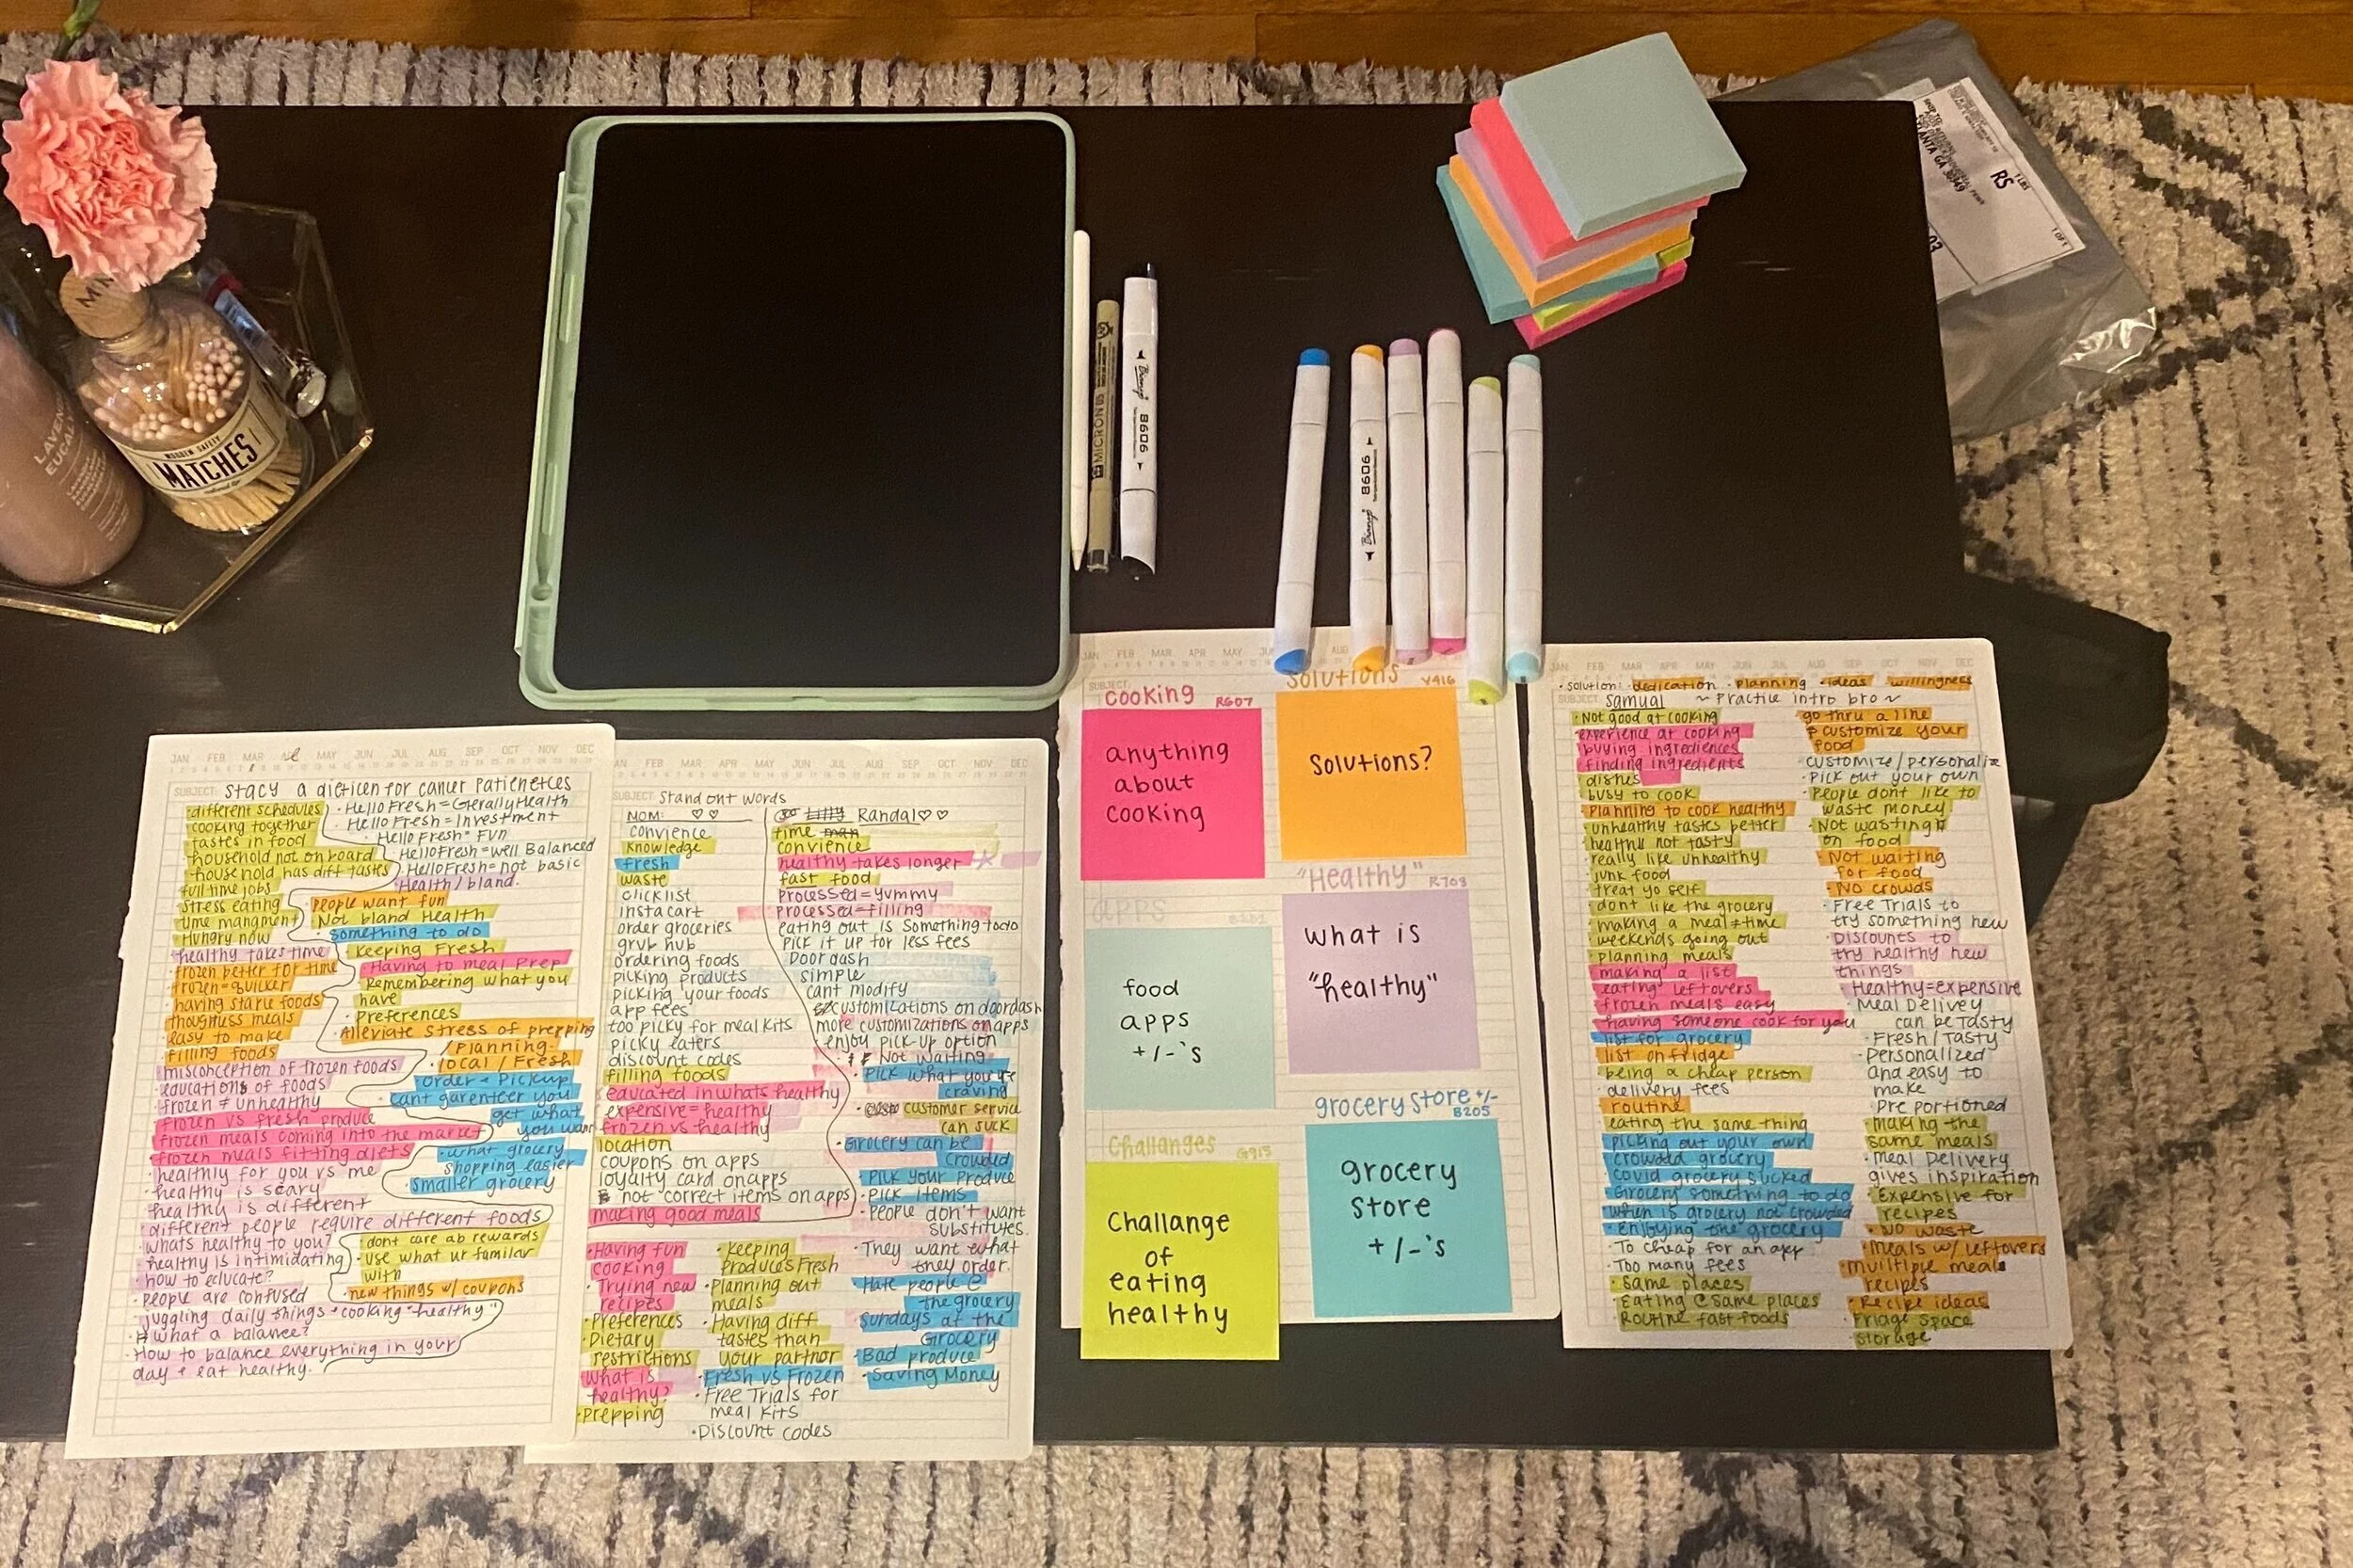 MATCHES
WOODEN SAFETY
MICRON 05
Bianyo
8606
Bianyo
8606
RS
1 OF 1
ATLANTA GA 30349
JAN FEB MAR APR MAY JUN JUL AUG SEP OCT NOV DEC
SUBJECT: Stacy a dietician for cancer Patienetces
different schedules
cooking together
tastes in food
household not on board
household has diff tastes
full time jobs
stress eating
time mangment
Hungry now
healthy takes time
frozen better for time
frozen = quicker
having staple foods
easy to make
filling foods
misconception of frozen foods
educations of foods
frozen ≠ unhealthy
frozen vs fresh produce
frozen meals coming into the market
frozen meals fitting diets
healthly for you vs me
healthy is scary
healthy is different
different people require different foods
whats healthy to you?
healthy is intimidating
how to educate?
people are confused
juggling daily things + cooking "healthy"
what a balance?
How to balance everything in your
day + eat healthy.
Hello Fresh = Gerally Health
Hello Fresh = Investment
Hello Fresh = Fun
Hello Fresh = well Balanced
Hello Fresh = not basic
Health / bland.
people want fun
Not bland Health
something to do
keeping Fresh
Having to meal Prep
Remembering what you
have
preferences
Alleviate stress of prepping
/Planning
local / Fresh
order + Pickup
cant garenteer you
get what
you want
what grocery
shopping easier
smaller grocery
dont care ab rewards
use what ur familar
with
new things w/ coupons
FEB MAR APR MAY JUN JUL AUG SEP OCT NOV DEC
SUBJECT: Stand out words
MOM: ♡♡
convience
knowledge
fresh
waste
clicklist
instacart
order groceries
grub hub
ordering foods
picking products
picking your foods
app fees
too picky for meal kits
picky eaters
discount codes
filling foods
educated in whats healthy
expensive = healthy
frozen vs healthy
location
coupons on apps
loyalty card on apps
not correct items on apps
making good meals
Randal ♡♡
time
convience
healthy takes longer
fast food
processed = yummy
processed = filling
eating out is something todo
pick it up for less fees
Doordash
simple
cant modify
customizations on doordash
more customizations on apps
enjoy pick-up option
Not waiting
Pick what you're
craving
customer service
can suck
Grocery can be
crowded
Pick your produce
Pick items
People don't want
substitutes.
They want what
they order.
Hate people @
the grocery
Sundays at the
Grocery
Bad produce
Saving Money
Having fun
cooking
Trying new
recipes
Preferences
Dietary
restrictions
what is
healthy?
prepping
keeping
Produces Fresh
Planning out
meals
Having diff
tastes than
your partner
Fresh vs Frozen
Free Trials for
meal kits
Discount codes
JAN FEB MAR APR MAY JUN AUG
SUBJECT:
cooking R607
anything
about
cooking
Solutions Y416
Solutions?
apps
food
apps
+/-'s
"Healthy" R708
what is
"healthy"
Challanges G915
Challange
of
eating
healthy
grocery store +/-
B205
grocery
store
+/-'s
JAN FEB MAR APR MAY JUN JUL AUG SEP OCT NOV DEC
• solution: • dedication • planning • ideas • willingness
SUBJECT: Samual ~ Practice intro bro ~
Not good at cooking
experience at cooking
buying ingredients
finding ingredients
dishes
busy to cook
Planning to cook healthy
unhealthy tastes better
healthy not tasty
really like unhealthy
junk food
treat yo self
dont like the grocery
making a meal = time
weekends going out
planning meals
making a list
eating leftovers
frozen meals easy
having someone cook for you
list for grocery
list on fridge
being a cheap person
delivery fees
routine
eating the same thing
picking out your own
crowded grocery
covid grocery sucked
Grocery something to do
when is grocery not crowded
Enjoying the grocery
To cheap for an app
Too many fees
same places
Eating @ same places
Routine fast foods
go thru a line
+ customize your
food
customize / personalize
Pick out your own
People dont like to
waste money
Not wasting
on food
Not waiting
for food
No crowds
Free Trials to
try something new
Discounts to
try healthy new
things
Healthy = expensive
Meal Delivey
can be Tasty
Fresh / Tasty
Personalized
and easy to
make
Pre portioned
making the
same meals
Meal Delivery
gives inspiration
Expensive for
recipes
No waste
Meals w/ leftovers
multiple meals
recipes
Recipe ideas
Friage space
storage